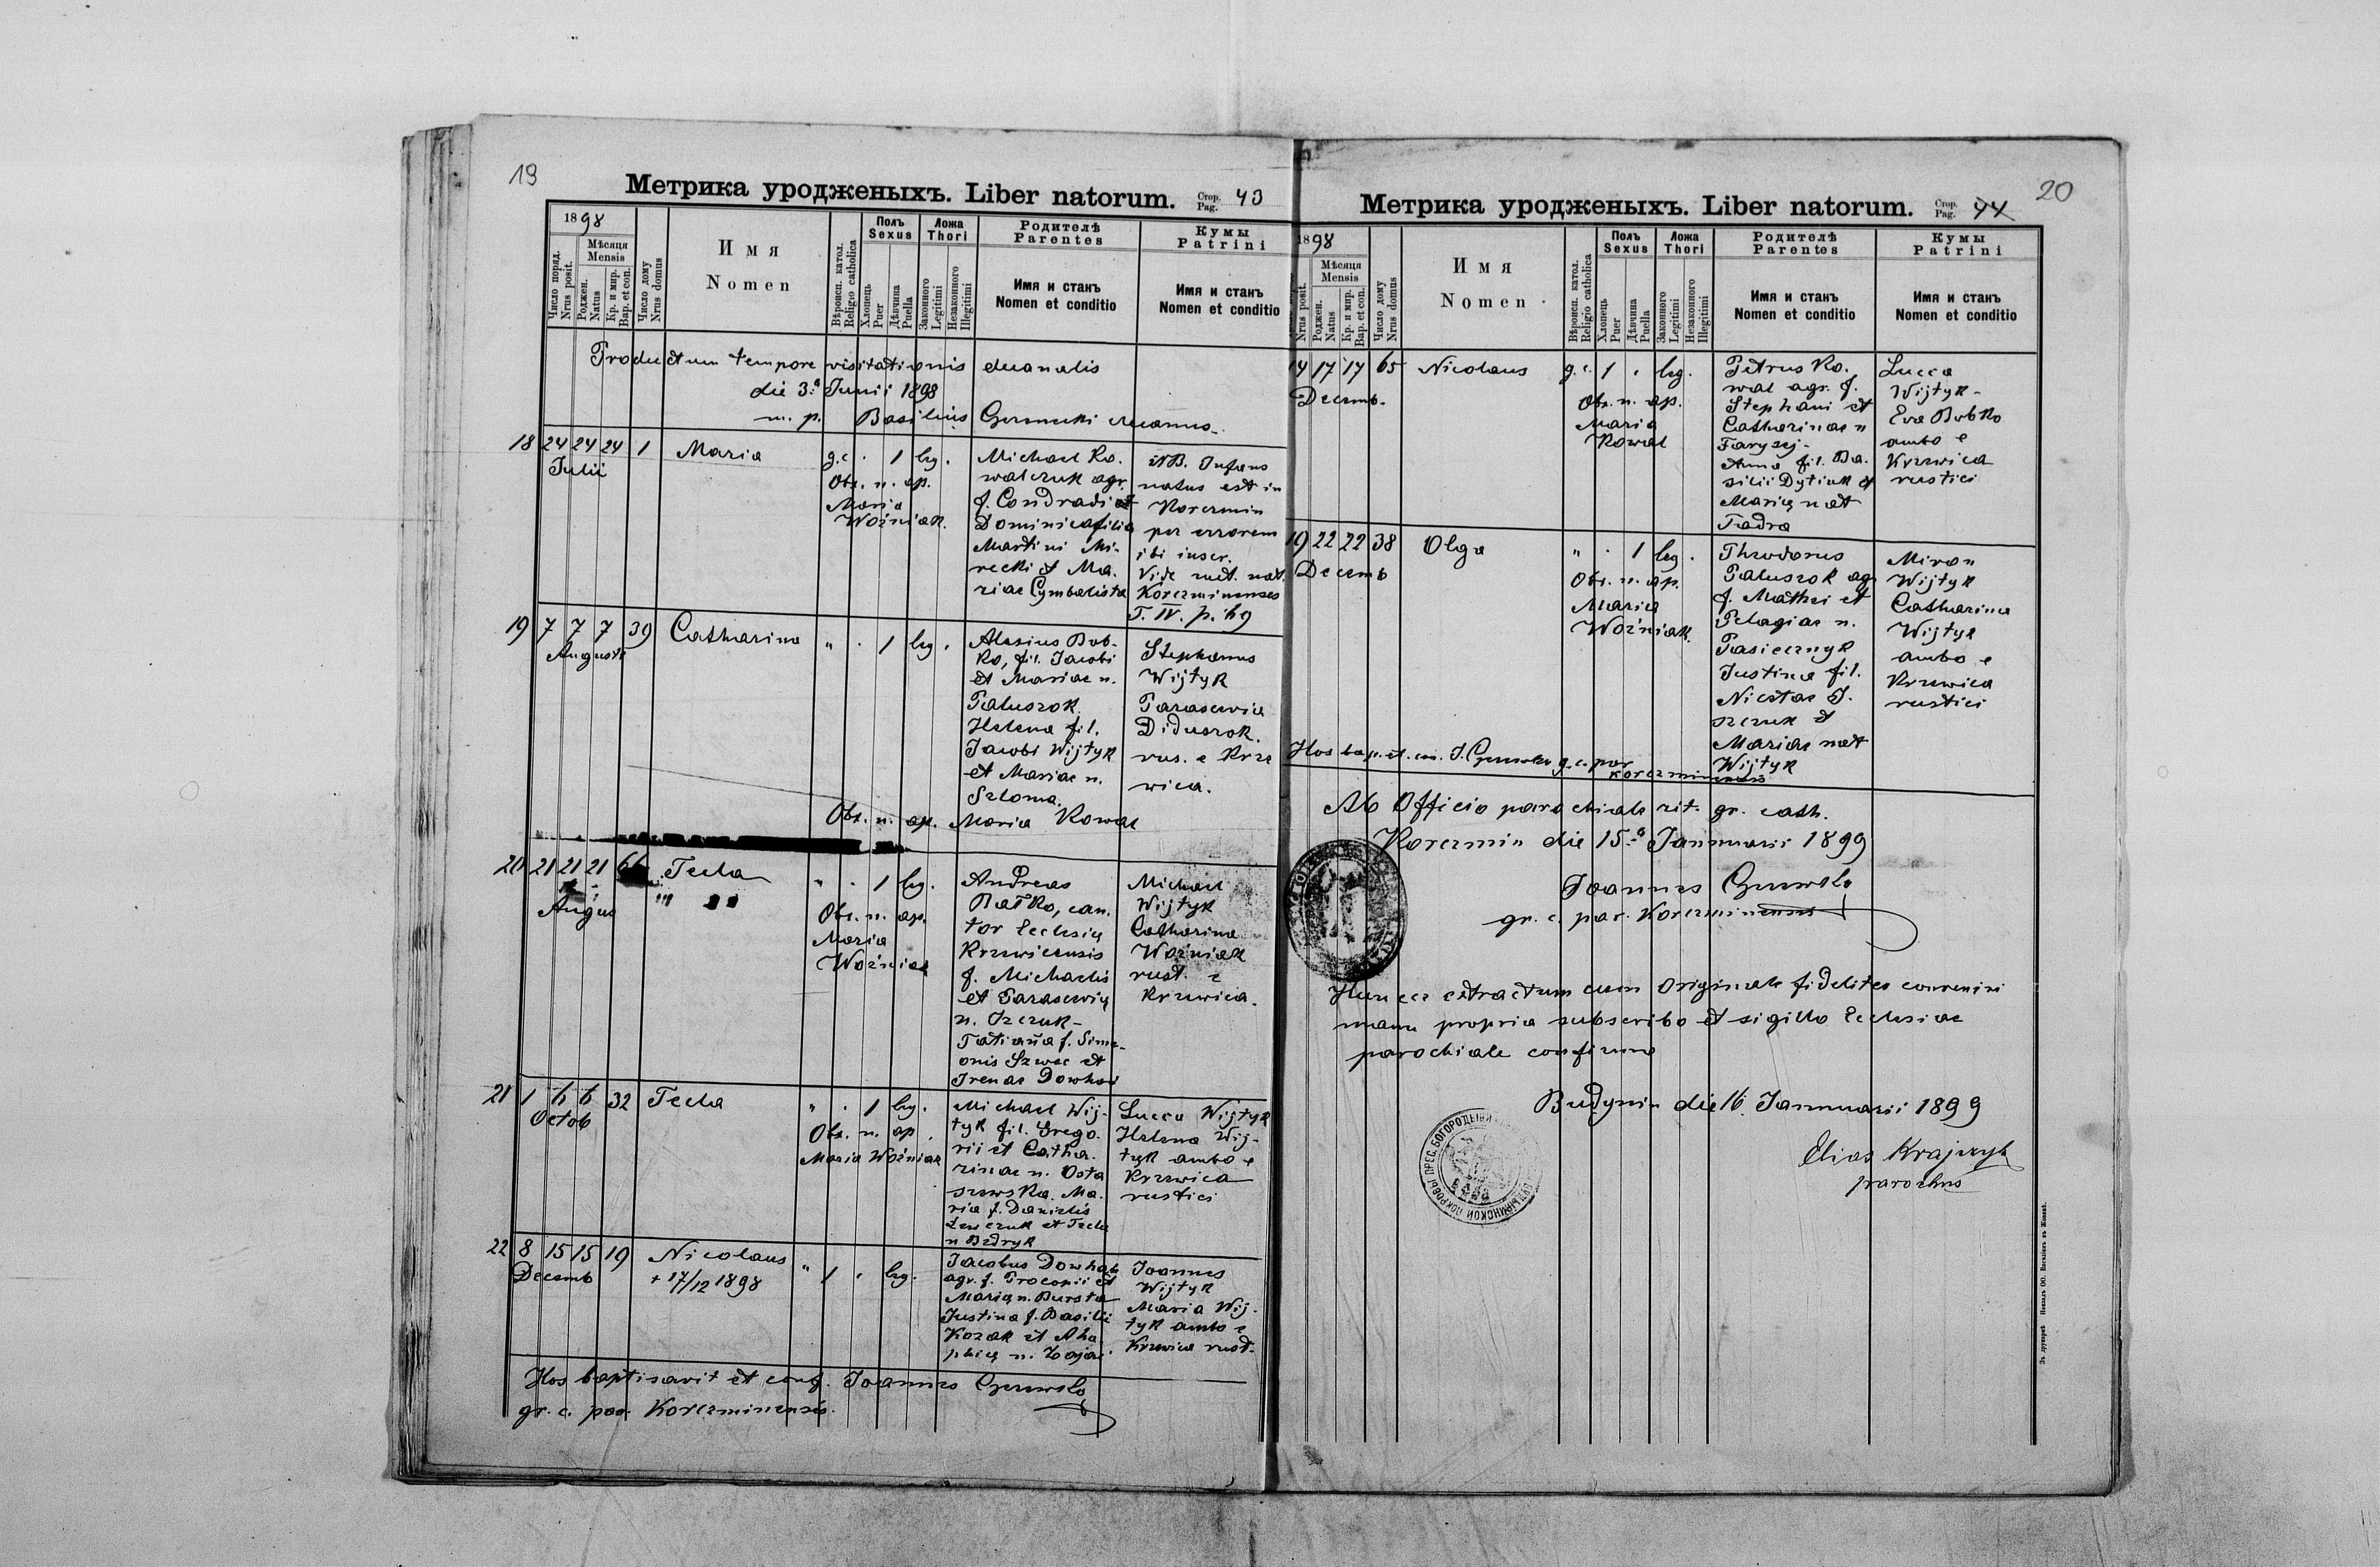 19
Метрика уродженыхъ. Liber natorum. Стор. Pag. 43
1898
Число поряд. Nrus posit.
Мѣсяця Mensis
Роджен. Natus
Кр. и мир. Bap. et con.
Число дому Nrus domus
Имя Nomen
Вѣроисп. катол. Religio catholica
Полъ Sexus
Хлопець Puer
Дѣвчина Puella
Ложа Thori
Законного Legitimi
Незаконного Illegitimi
Родителѣ Parentes
Имя и станъ Nomen et conditio
Кумы Patrini
Имя и станъ Nomen et conditio
Productum tempore visitationis decanalis
die 3.a Junii 1898
m. p. Basilius decanus
18 24 24 24 1 Maria g.c. 1 leg.
Julii
Obs. n. ap.
Maria
Woźniak.
Michael Ko-
walczuk agr.
f. Condradi et
Dominica filia
Martini Mi-
recki et Ma-
riae Cymbalista
NB. Infans
natus est in
Korczmin
per errorem
ibi inscr.
Vide met. nat.
Korczminenses
T. IV. p. 69
19 7 7 7 39 Catharina " 1 leg.
Augusti
Alexius Bob-
ko, fil. Jacobi
et Mariae n.
Paluszok.
Helena fil.
Jacobi Wijtyk
et Mariae n.
Szloma.
Stephanus
Wijtyk
Parascevia
Diduszok.
rus. e Krze
wica.
Obs. n. ap. Maria Kowal
20 21 21 21 66 Tecla " 1 leg.
Augus
Obs. n. ap.
Maria
Woźniak
Andreas
Batko, can-
tor Ecclesię
Krzewicensis
f. Michaelis
et Parascevię
n. Iszczuk-
Tatianna f. Sime-
onis Szwec et
Irenae Dowhań
Michael
Wijtyk
Catharina
Woźniak
rust. e
Krzewica.
21 1 6 6 32 Tecla " 1 leg.
Octob
Obs. n. ap.
Maria Woźniak
Michael Wij-
tyk fil. Grego-
rii et Catha-
rinae n. Osta
szewska. Ma-
ria f. Danielis
Lewczuk et Tecla
n Bedryk
Lucca Wijtyk
Helena Wij-
tyk ambo e
Krzewica
rustici
22 8 15 15 19 Nicolaus " 1 leg.
Decemb + 17/12 1898
Jacobus Dowhań
agr. f. Procopii et
Marię n. Bursta
Justina f. Basilii
Kozak et Aha-
phię n. Zajac
Joannes
Wijtyk
Maria Wij-
tyk ambo e
Krzewica rust.
Hos baptisavit et conf. Joannes
gr. c. par. Korczminensis.
20
Метрика уродженыхъ. Liber natorum. Стор. Pag. 44
1898
Nrus posit.
Мѣсяця Mensis
Роджен. Natus
Кр. и мир. Bap. et con.
Число дому Nrus domus
Имя Nomen
Вѣроисп. катол. Religio catholica
Полъ Sexus
Хлопець Puer
Дѣвчина Puella
Ложа Thori
Законного Legitimi
Незаконного Illegitimi
Родителѣ Parentes
Имя и станъ Nomen et conditio
Кумы Patrini
Имя и станъ Nomen et conditio
14 17 17 65 Nicolaus g.c. 1 leg.
Decemb.
Obs. n. ap.
Maria
Kowal
Petrus Ko-
wal agr. f.
Stephani et
Catharinae n
Farysej-
Anna fil. Ba-
silii Dytiuk et
Marię nat
Fadra
Lucca
Wijtyk-
Eva Bobko
ambo e
Krzewica
rustici
19 22 22 38 Olga " 1 leg.
Decemb
Obs. n. ap.
Maria
Woźniak.
Theodorus
Paluszok agr
f. Mathei et
Pelagiae n.
Pasiecznyk
Justina fil.
Nicetae I-
szczuk et
Mariae nat
Wijtyk
Miron
Wijtyk
Catharina
Wijtyk
ambo e
Krzewica
rustici
Hos bap. et con. J. g. c. par
Korczminensis
Ab Officio parochiale rit. gr. cath.
Korczmin die 15.a Jannuarii 1899
Joannes
gr. c. par. Korczminensis
Huncce extractum cum Originale fideliter convenire
manu propria subscribo et sigillo Ecclesiae
parochiale confirmo
Budynin die 16. Jannuarii 1899
Elias Krajczyk
parochus
ПОКРОВЫ ПРЕС. БОГОРОДИЦЫ